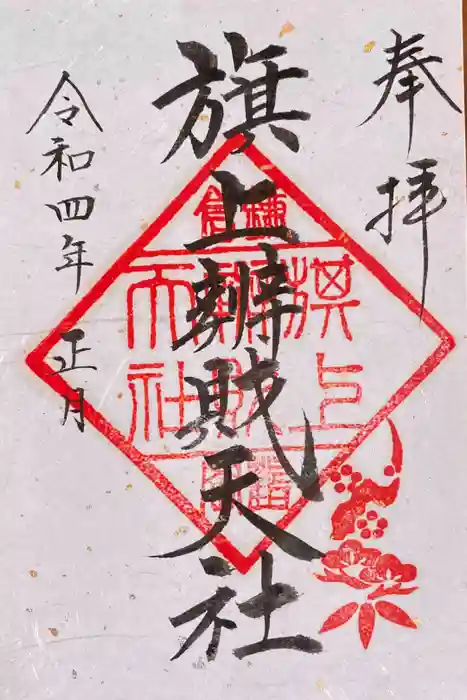 奉拝
旗上辨財天社
令和四年 正月
鎌倉
旗上
辨財
天社